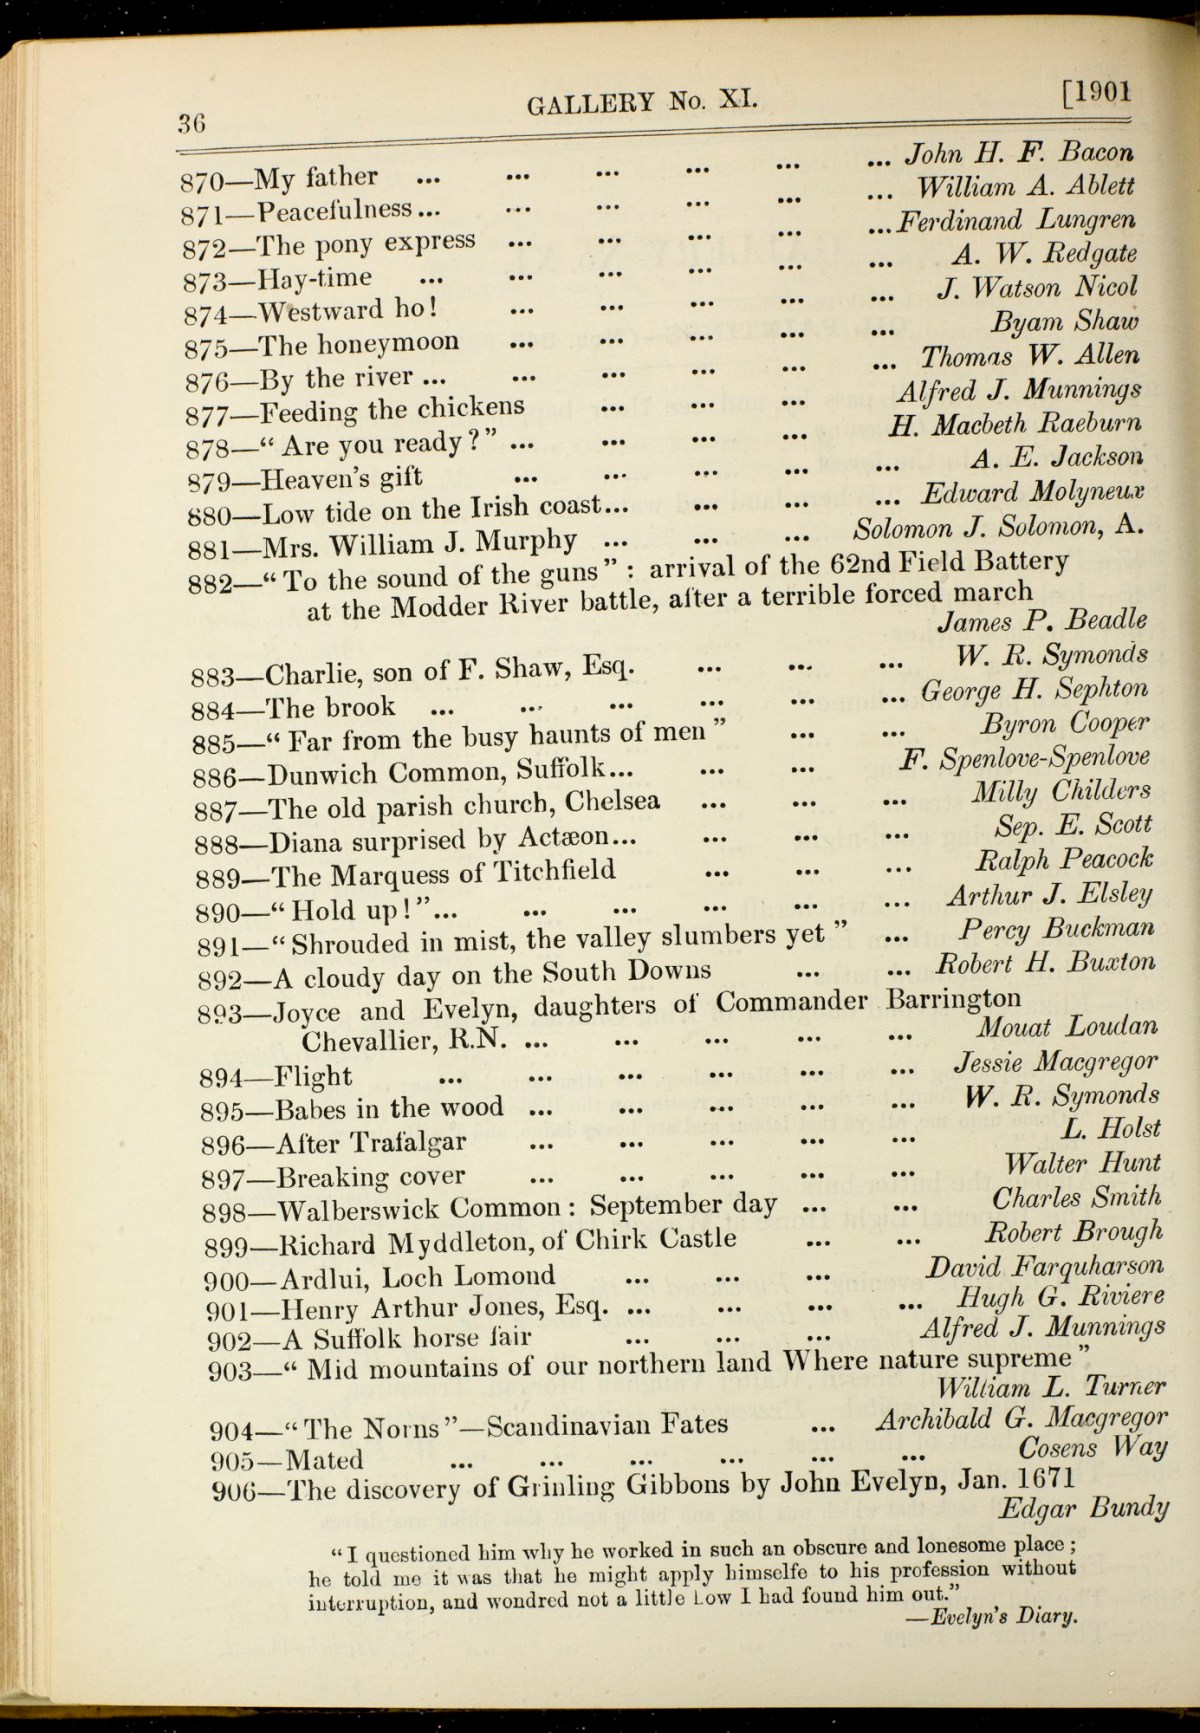 36 GALLERY No. XI. [1901
870—My father ... ... ... ... ... ... John H. F. Bacon
871—Peacefulness... ... ... ... ... ... William A. Ablett
872—The pony express ... ... ... ... ...Ferdinand Lungren
873—Hay-time ... ... ... ... ... ... A. W. Redgate
874—Westward ho! ... ... ... ... ... J. Watson Nicol
875—The honeymoon ... ... ... ... ... Byam Shaw
876—By the river ... ... ... ... ... ... Thomas W. Allen
877—Feeding the chickens ... ... ... Alfred J. Munnings
878—“Are you ready?” ... ... ... ... H. Macbeth Raeburn
879—Heaven's gift ... ... ... ... ... A. E. Jackson
880—Low tide on the Irish coast... ... ... ... Edward Molyneux
881—Mrs. William J. Murphy ... ... ... Solomon J. Solomon, A.
882—“To the sound of the guns” : arrival of the 62nd Field Battery
at the Modder River battle, after a terrible forced march
James P. Beadle
883—Charlie, son of F. Shaw, Esq. ... ... ... W. R. Symonds
884—The brook ... ... ... ... ... ... George H. Sephton
885—“Far from the busy haunts of men” ... ... Byron Cooper
886—Dunwich Common, Suffolk... ... ... F. Spenlove-Spenlove
887—The old parish church, Chelsea ... ... ... Milly Childers
888—Diana surprised by Actæon... ... ... ... Sep. E. Scott
889—The Marquess of Titchfield ... ... ... Ralph Peacock
890—“Hold up!”... ... ... ... ... ... Arthur J. Elsley
891—“Shrouded in mist, the valley slumbers yet” ... Percy Buckman
892—A cloudy day on the South Downs ... ... Robert H. Buxton
893—Joyce and Evelyn, daughters of Commander Barrington
Chevallier, R.N. ... ... ... ... ... Mouat Loudan
894—Flight ... ... ... ... ... ... Jessie Macgregor
895—Babes in the wood ... ... ... ... ... W. R. Symonds
896—After Trafalgar ... ... ... ... ... L. Holst
897—Breaking cover ... ... ... ... ... Walter Hunt
898—Walberswick Common : September day ... ... Charles Smith
899—Richard Myddleton, of Chirk Castle ... ... Robert Brough
900—Ardlui, Loch Lomond ... ... ... David Farquharson
901—Henry Arthur Jones, Esq. ... ... ... ... Hugh G. Riviere
902—A Suffolk horse fair ... ... ... Alfred J. Munnings
903—“Mid mountains of our northern land Where nature supreme”
William L. Turner
904—“The Norns”—Scandinavian Fates ... Archibald G. Macgregor
905—Mated ... ... ... ... ... ... Cosens Way
906—The discovery of Grinling Gibbons by John Evelyn, Jan. 1671
Edgar Bundy
“I questioned him why he worked in such an obscure and lonesome place ;
he told me it was that he might apply himselfe to his profession without
interruption, and wondred not a little how I had found him out.”
—Evelyn's Diary.